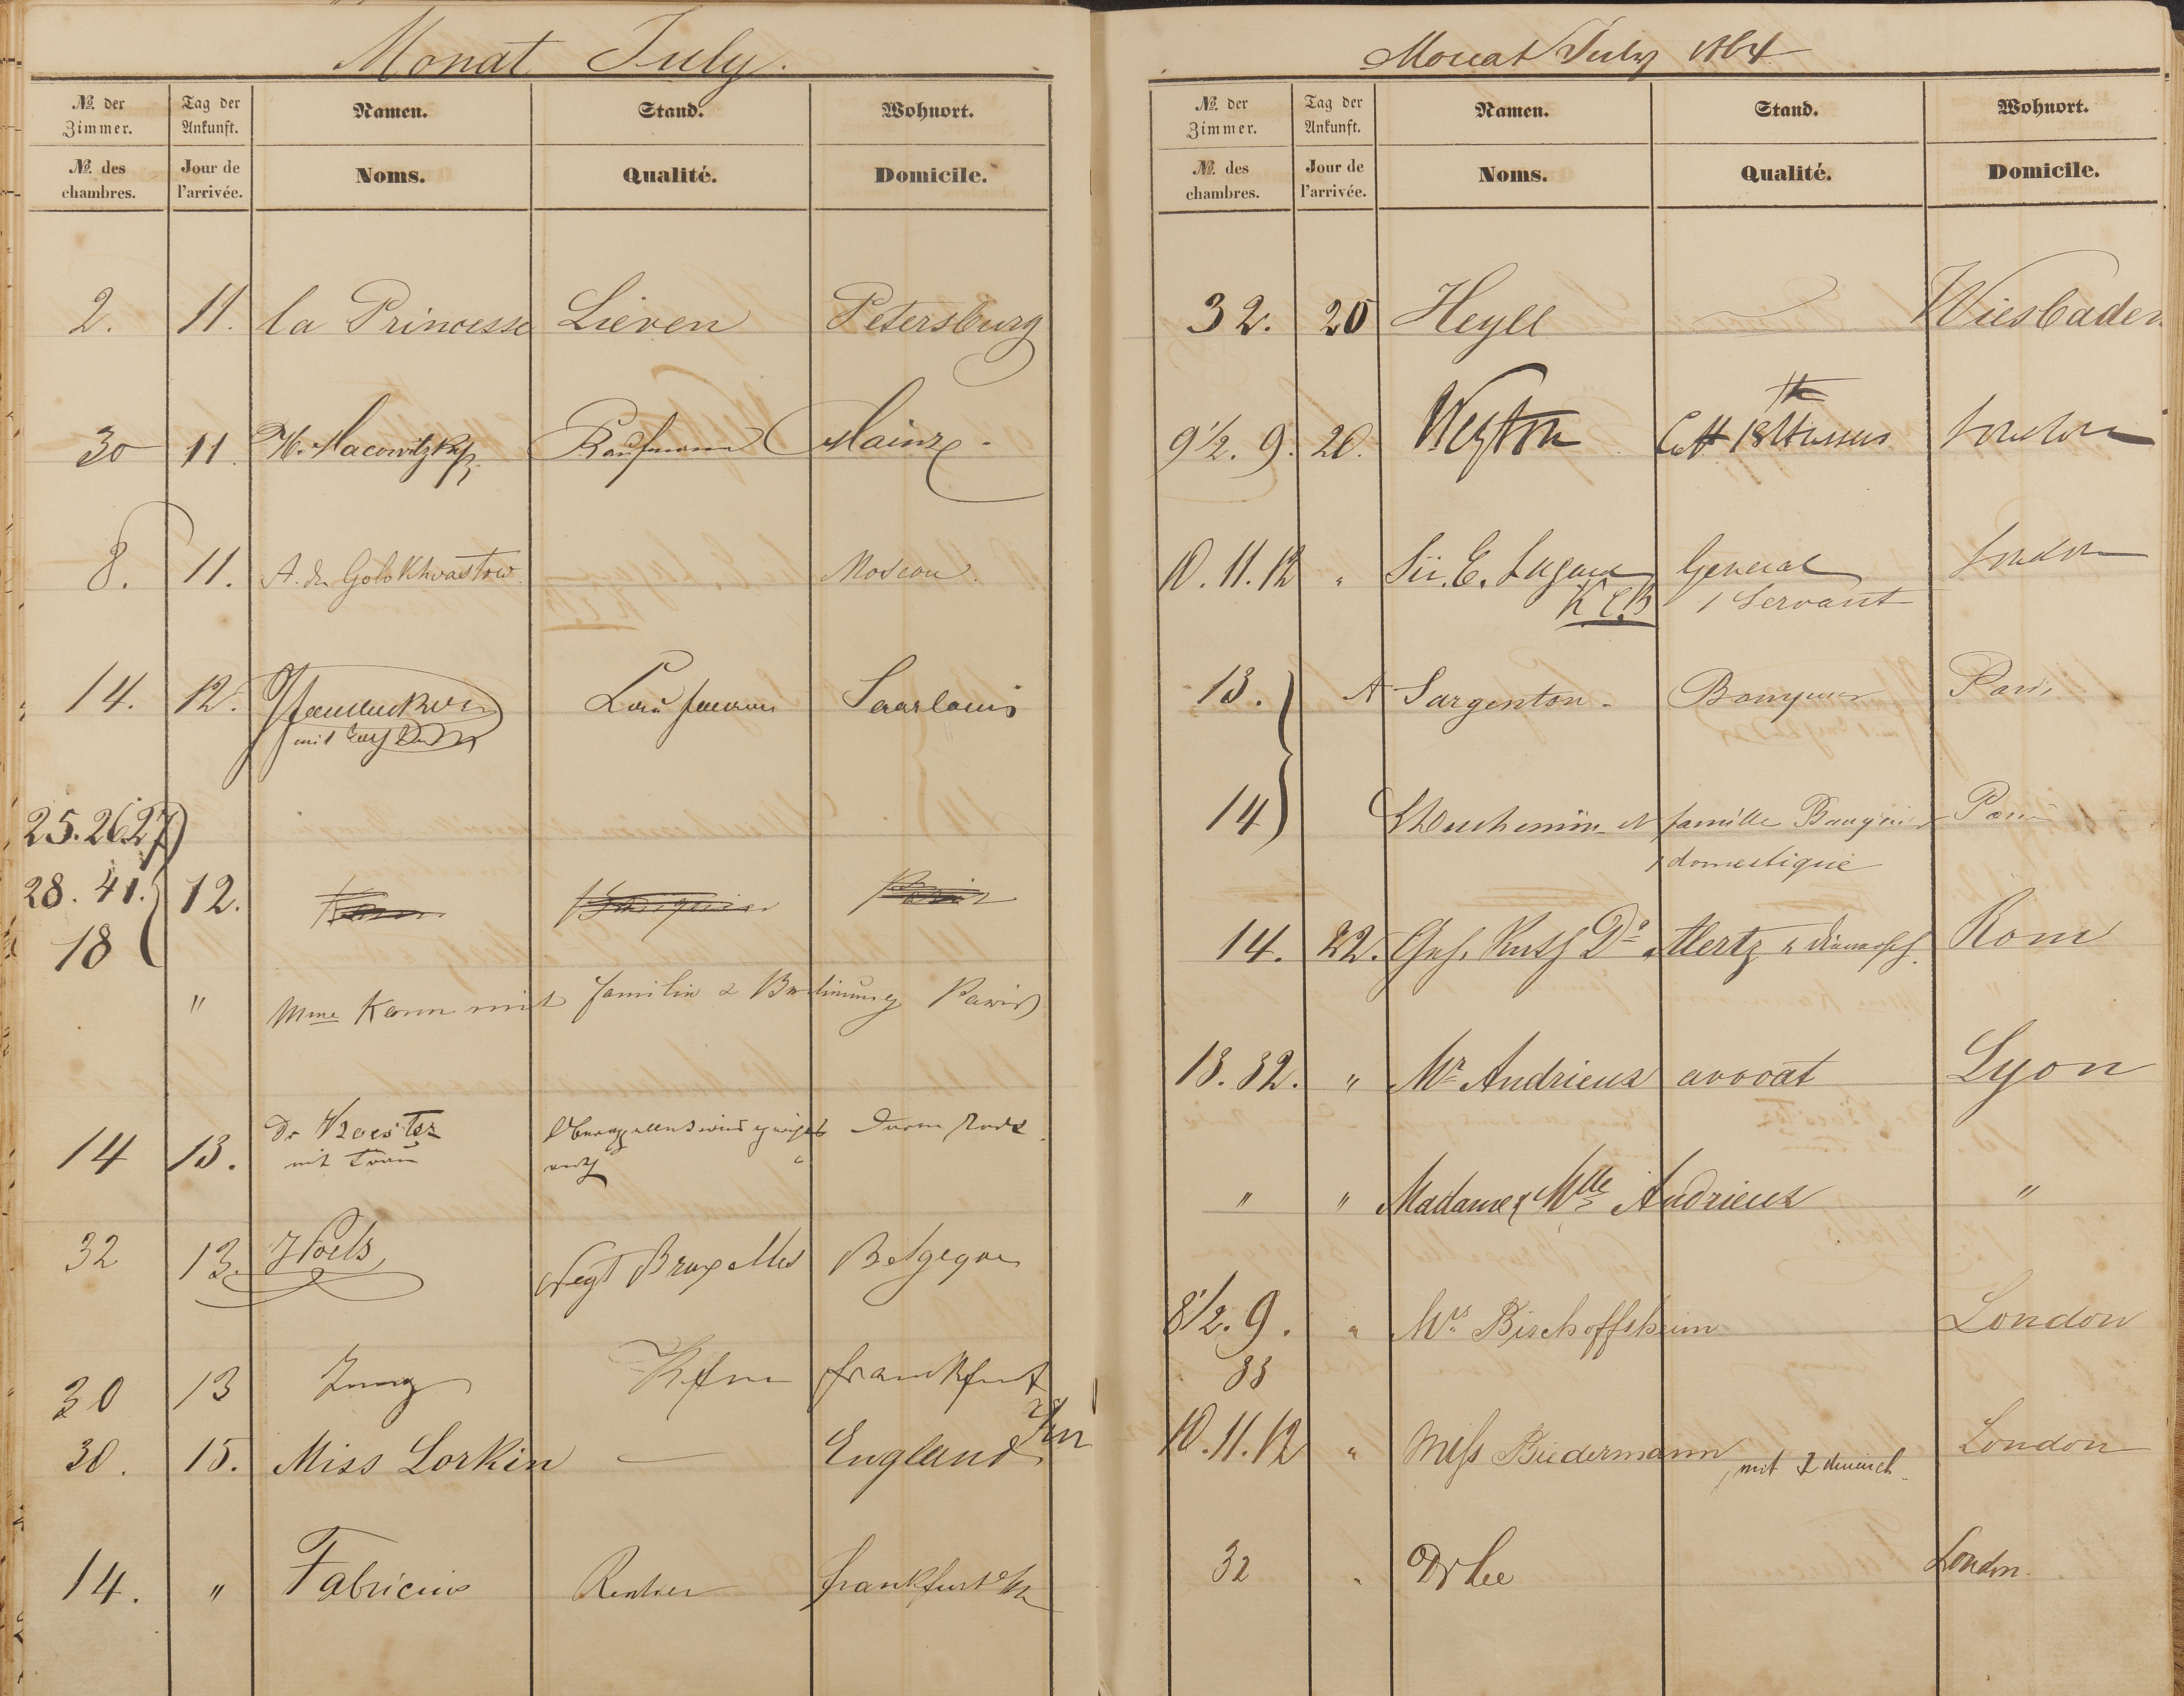 Monat July.
№ der Zimmer. Tag der Ankunft. Namen. Stand. Wohnort.
№ des chambres. Jour de l'arrivée. Noms. Qualité. Domicile.
2. 11. la Princesse Lieven Petersburg
30 11. H. Kaufmann Mainz.
8. 11. A. de Golokhvastow. Moscou.
14. 12. Kaufmann Saarlouis
mit
25.26.27
28. 41. 12. Kann Banquier Paris
18
" Mme Kann mit Familie & Bedienung Paris
14 13. Dr
mit Frau rath "
32 13. Negt Bruxelles Belgique
30 13 Kfm Frankfurt
30. 15. Miss Lorkin — England
14. " Fabricius Rentner Frankfurt a/m
Monat July 1864
№ der Zimmer. Tag der Ankunft. Namen. Stand. Wohnort.
№ des chambres. Jour de l'arrivée. Noms. Qualité. Domicile.
32. 20 Heyll Wiesbaden
9½. 9. 20. 18 Hussars London
10. 11. 12 " Sir. E. Lugard General London
K.C.B 1 Servant
13. A Sargenton. Banquier Paris
14 et famille Banquier Paris
1 domestique
14. 22. Dr Mertz Rom
13. 32. " Mr Andrieux avocat Lyon
" " Madame & Mlle Andrieux "
8½. 9. " Mrs Bischoffsheim London
33
10. 11. 12 " Miss Biedermann mit London
32 " Dr Lee London.